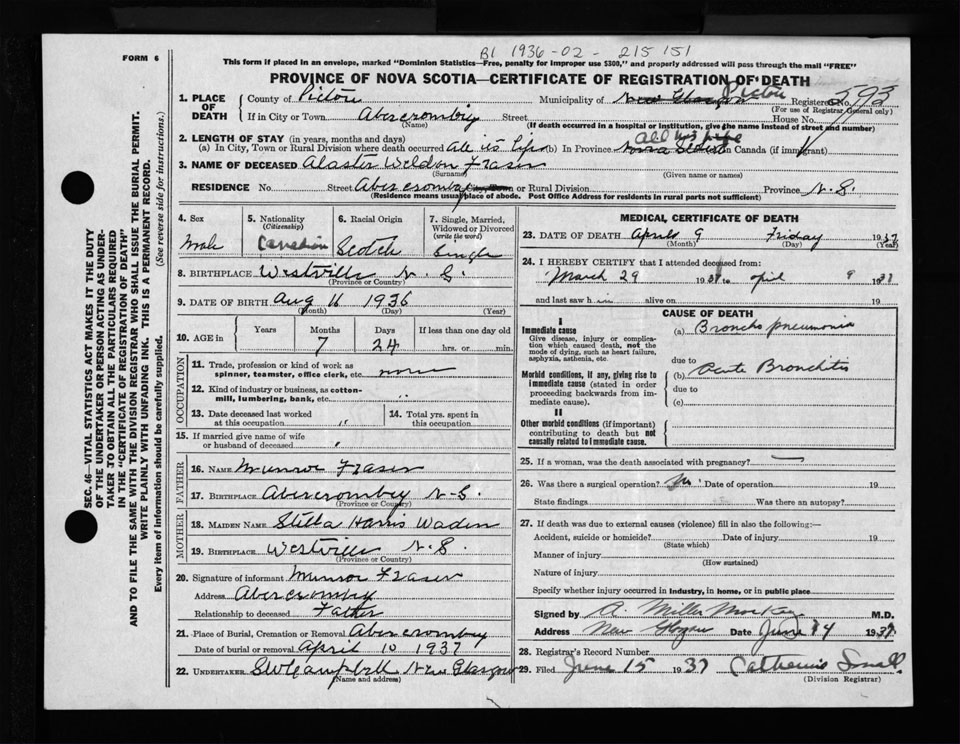 B1 1936-02-215151
FORM 6
This form if placed in an envelope, marked "Dominion Statistics—Free, penalty for improper use $300," and properly addressed will pass through the mail "FREE"
PROVINCE OF NOVA SCOTIA—CERTIFICATE OF REGISTRATION OF DEATH
1. PLACE OF DEATH County of Pictou Municipality of New Glasgow Pictou Registered No. 593
(For use of Registrar General only)
If in City or Town Abercrombey Street House No.
(Name) (If death occurred in a hospital or institution, give the name instead of street and number)
2. LENGTH OF STAY (in years, months and days) All his life
(a) In City, Town or Rural Division where death occurred All is life (b) In Province Nova Scotia Canada (if immigrant)
3. NAME OF DECEASED Alaster Weldon Fraser
(Surname) (Given name or names)
RESIDENCE No. Street Abercromby City, Town or Rural Division Province N.S.
(Residence means usual place of abode. Post Office Address for residents in rural parts not sufficient)
4. Sex 5. Nationality (Citizenship) 6. Racial Origin 7. Single, Married, Widowed or Divorced (write the word)
Male Canadian Scotch Single
8. BIRTHPLACE Westville N.S.
(Province or Country)
9. DATE OF BIRTH Aug 16 1936
(Month) (Day) (Year)
10. AGE in Years Months Days If less than one day old
7 24 hrs. or min.
OCCUPATION
11. Trade, profession or kind of work as spinner, teamster, office clerk, etc. none
12. Kind of industry or business, as cotton-mill, lumbering, bank, etc. "
13. Date deceased last worked at this occupation " 14. Total yrs. spent in this occupation
15. If married give name of wife or husband of deceased
FATHER
16. NAME Munroe Fraser
17. BIRTHPLACE Abercrombey N.S.
(Province or Country)
MOTHER
18. MAIDEN NAME Stella Harris Waden
19. BIRTHPLACE Westville N.S.
(Province or Country)
20. Signature of informant Munroe Fraser
Address Abercromby
Relationship to deceased Father
21. Place of Burial, Cremation or Removal Abercrombey
Date of burial or removal April 10 1937
22. UNDERTAKER S W Campbell New Glasgow
(Name and address)
MEDICAL CERTIFICATE OF DEATH
23. DATE OF DEATH April 9 Friday 1937
(Month) (Day) (Year)
24. I HEREBY CERTIFY that I attended deceased from:
March 29 1937 to april 9 1937
and last saw him alive on 19
CAUSE OF DEATH
I
Immediate cause (a) Broncho pneumonia
Give disease, injury or complication which caused death, not the mode of dying, such as heart failure, asphyxia, asthenia, etc.
due to
Morbid conditions, if any, giving rise to immediate cause (stated in order proceeding backwards from immediate cause).
(b) Acute Bronchitis
due to
(c)
II
Other morbid conditions (if important) contributing to death but not causally related to immediate cause.
25. If a woman, was the death associated with pregnancy?
26. Was there a surgical operation? No Date of operation 19
State findings Was there an autopsy?
27. If death was due to external causes (violence) fill in also the following:—
Accident, suicide or homicide? Date of injury 19
(State which)
Manner of injury
(How sustained)
Nature of injury
Specify whether injury occurred in industry, in home, or in public place
Signed by A. Miller MacKay M.D.
Address New Glasgow Date June 14 1937
28. Registrar's Record Number
29. Filed June 15 1937 Catherine Small
(Division Registrar)
SEC. 46—VITAL STATISTICS ACT MAKES IT THE DUTY
OF THE UNDERTAKER OR PERSON ACTING AS UNDER-
TAKER TO OBTAIN ALL THE PARTICULARS REQUIRED
IN THE "CERTIFICATE OF REGISTRATION OF DEATH"
AND TO FILE THE SAME WITH THE DIVISION REGISTRAR WHO SHALL ISSUE THE BURIAL PERMIT.
WRITE PLAINLY WITH UNFADING INK. THIS IS A PERMANENT RECORD.
Every item of information should be carefully supplied. (See reverse side for instructions.)